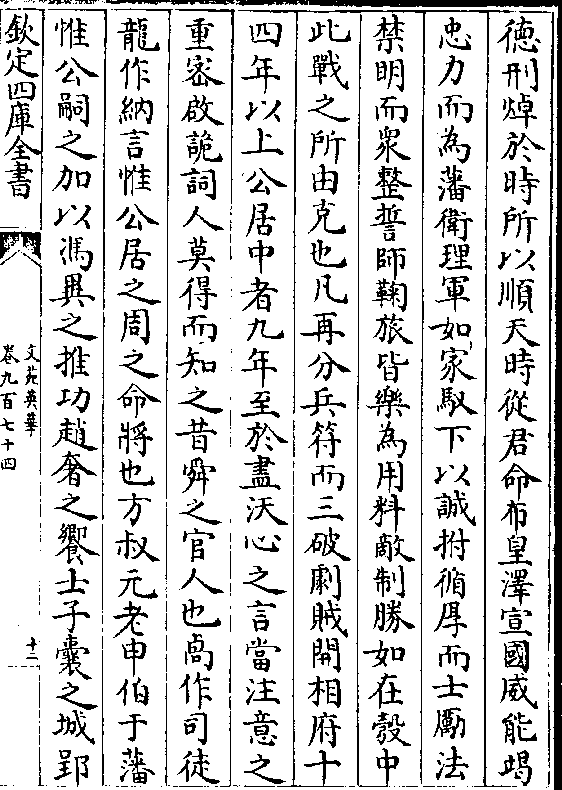 德刑焯於時所以順天時從君命布皇澤宣國威能竭
忠力而為藩衛理軍如家馭下以誠拊循厚而士勵法
禁明而衆整誓師鞠旅皆樂為用料敵制勝如在彀中
此戰之所由克也凡再分兵符而三破劇賊開相府十
四年以上公居中者九年至於盡沃心之言當注意之
重密啟詭詞人莫得而知之昔舜之官人也卨作司徒
龍作納言惟公居之周之命將也方叔元老申伯于藩
惟公嗣之加以馮異之推功趙奢之饗士子囊之城郢
欽定四庫全書
文苑英華
卷九百七十四
十二